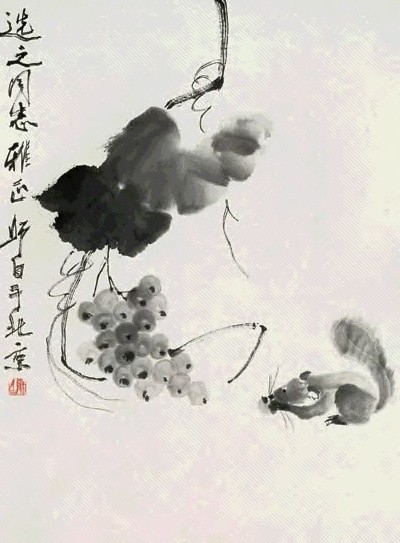 选之同志雅正师白于北京